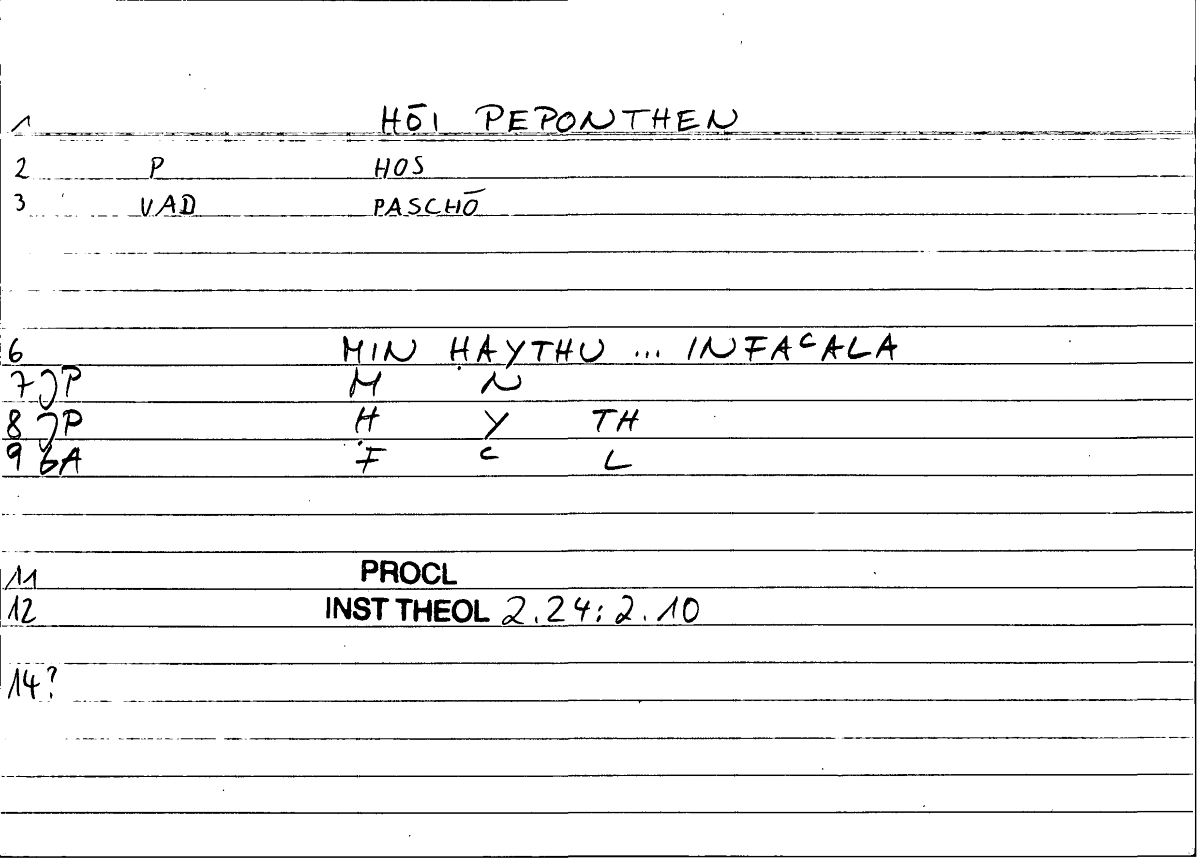 1 HŌI PEPONTHEN
2 P HOS
3 VAD PASCHŌ
6 MIN ḤAYTHU ... INFAᶜALA
7 JP M N
8 JP Ḥ Y TH
9 6A F ᶜ L
11 PROCL
12 INST THEOL 2.24:2.10
14?